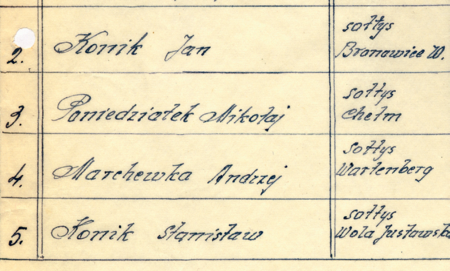 2. Konik Jan
sołtys
Bronowice W.
3. Poniedziałek Mikołaj
sołtys
Chełm
4. Marchewka Andrzej
sołtys
Wartenberg
5. Konik Stanisław
sołtys
Wola Justowska